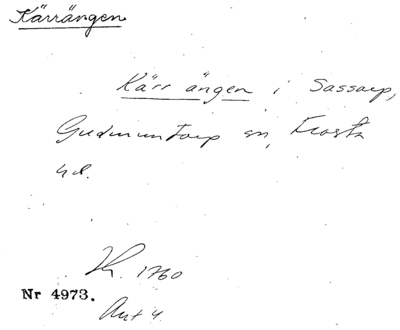 Kärrängen
Kärr ängen i Sassarp,
Gudmuntorp sn, Frosta
hd.
1760
Nr 4973.